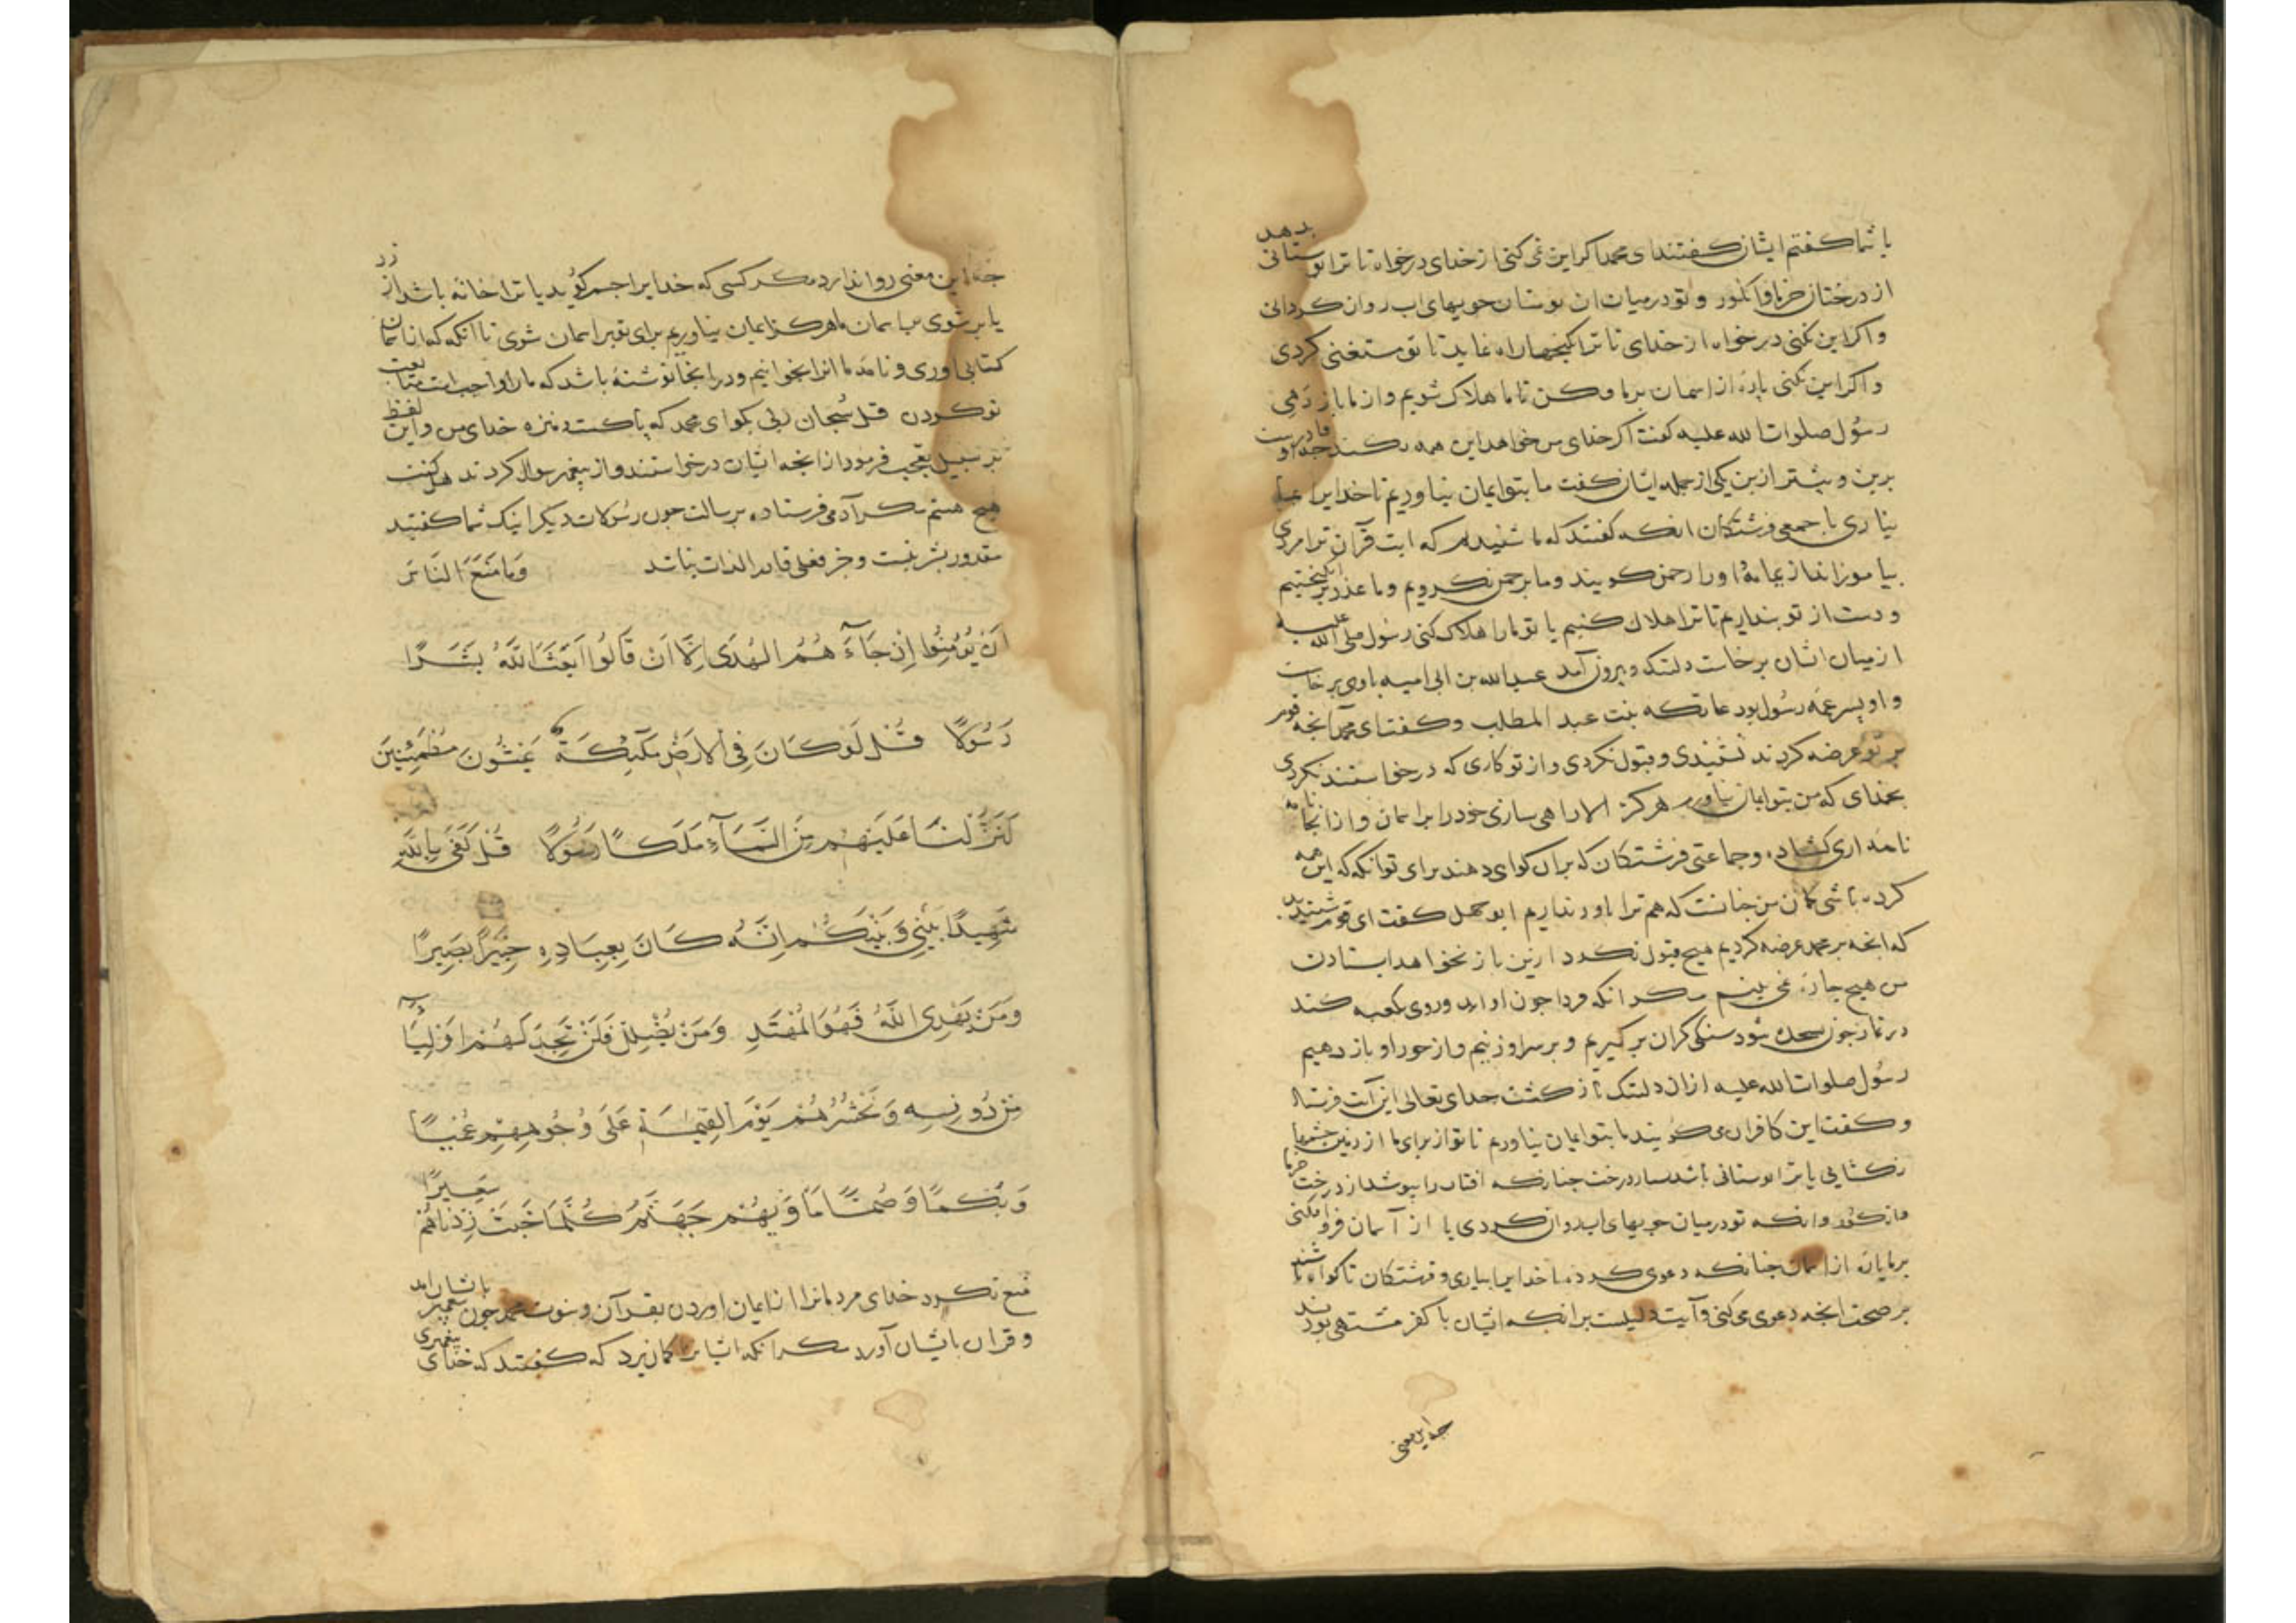 با شما کفتم ایشان کفتند ای محمد اکر این نمی کنی از خدای درخواه تا ترا بوستانی بدهد
از درختان خرما و انکور و تو در میان ان بوستان جویهای اب روان کردانی
و اکر این نکنی درخواه از خدای تا ترا کنجها راه نماید تا تو مستغنی کردی
و اکر این نکنی پارۀ از اسمان بر ما وکن تا ما هلاک شویم و از ما باز رهی
رسول صلوات الله علیه کفت اکر خدای من خواهد این همه بکند جه او قادرست
برین و بیشتر ازین یکی از جمله ایشان کفت ما بتو ایمان نیاوریم تا خدایرا
نیاری با جمعی فرشتکان انکه کفتند که ما شنیدیم که این قرآن ترا مردی
بیاموزاند از یمامه او را رحمن کویند و ما برحمن نکرویم و ما عذر برانکیختیم
و دست از تو بنداریم تا ترا هلاک کنیم یا تو ما را هلاک کنی رسول صلی الله علیه
از میان ایشان برخاست دلتنک و بیرون آمد عبد الله بن ابی امیه با وی برخاست
و او پسر عمه رسول بود عاتکه بنت عبد المطلب و کفت ای محمد آنجه قوم
بر تو عرضه کردند نشنیدی و قبول نکردی و از تو کاری که درخواستند نکردی
بخدای که من بتو ایمان نیاورم هرکز الا راهی سازی خود را بر اسمان و از انجا نامه
نامه اری کشاده و جماعتی فرشتکان که بران کوای دهند برای تو انکه که این همه
کرده باشی کمان من جنانست که هم ترا باور ندارم ابو جهل کفت ای قوم شنیدید
که انجه بر محمد عرضه کردیم هیج قبول نکرد ازین باز نخواهد ایستادن
من هیج جارۀ نمی بینم مکر انکه فردا جون او اید و روی بکعبه کند
در نماز جون بسجده شود سنکی کران بر کیریم و بر سر او زنیم و از جور او باز رهیم
رسول صلوات الله علیه ازان دلتنک باز کشت خدای تعالی این آیت فرستاد
و کفت این کافران می کویند ما بتو ایمان نیاوریم تا تو از برای ما از زمین جشمها
نکشایی یا ترا بوستانی باشد بسیار درخت جنانکه افتاب را بپوشد از درخت خرما
و انکور و انکه تو در میان جویهای اب روان کردی یا از آسمان فرو افکنی
بر ما پارۀ از اسمان جنانکه دعوی کرده یا خدایرا بیاری و فرشتکان تا کواه باشند
بر صحت انجه دعوی می کنی و آیت دلیلست بر انکه ایشان با کفر مشتهی بودند
جه این معنی
جه این معنی روا ندارد مکر کسی که خدایرا جسم کوید یا ترا خانه باشد از زر
یا بر شوی بر اسمان ما هرکز ایمان نیاوریم برای تو بر اسمان شوی تا انکه که از اسمان
کتابی اوری و نامۀ ما انرا بخوانیم و در انجا نوشته باشد که ما را واجب است متابعت
تو کردن قل سبحان ربی بکو ای محمد که پاکست و منزه خدای من و این لفظ
بر سبیل تعجب فرمود از انجه ایشان درخواستند و از پیغمبر سوال کردند هل کنت
هیج هستم مکر آدمی فرستاده برسالت جون رسولان دیکر اینک شما کفتید
مقدور بشر نیست و جز فعل قادر الذات نباشد وَمَا مَنَعَ النَّاسَ
اَنْ يُؤْمِنُوا اِذْ جَاءَهُمُ الْهُدَى اِلَّا اَنْ قَالُوا اَبَعَثَ اللّٰهُ بَشَرًا
رَسُولًا قُلْ لَوْ كَانَ فِى الْاَرْضِ مَلٰٓئِكَةٌ يَمْشُونَ مُطْمَئِنِّينَ
لَنَزَّلْنَا عَلَيْهِمْ مِنَ السَّمَاءِ مَلَكًا رَسُولًا قُلْ كَفَى بِاللّٰهِ
شَهِيدًا بَيْنِى وَبَيْنَكُمْ اِنَّهُ كَانَ بِعِبَادِهِ خَبِيرًا بَصِيرًا
وَمَنْ يَهْدِى اللّٰهُ فَهُوَ الْمُهْتَدِ وَمَنْ يُضْلِلْ فَلَنْ تَجِدَ لَهُمْ اَوْلِيَاءَ
مِنْ دُونِهِ وَنَحْشُرُهُمْ يَوْمَ الْقِيٰمَةِ عَلَى وُجُوهِهِمْ عُمْيًا
وَبُكْمًا وَصُمًّا مَاْوَيهُمْ جَهَنَّمُ كُلَّمَا خَبَتْ زِدْنَاهُمْ سَعِيرًا
منع نکرد خدای مردمانرا از ایمان اوردن بقرآن و نبوت محمد جون پیغمبر باشان امد
و قران بایشان آورد مکر انکه ایشانرا کمان برد که کفتند که خدای پیغمبری